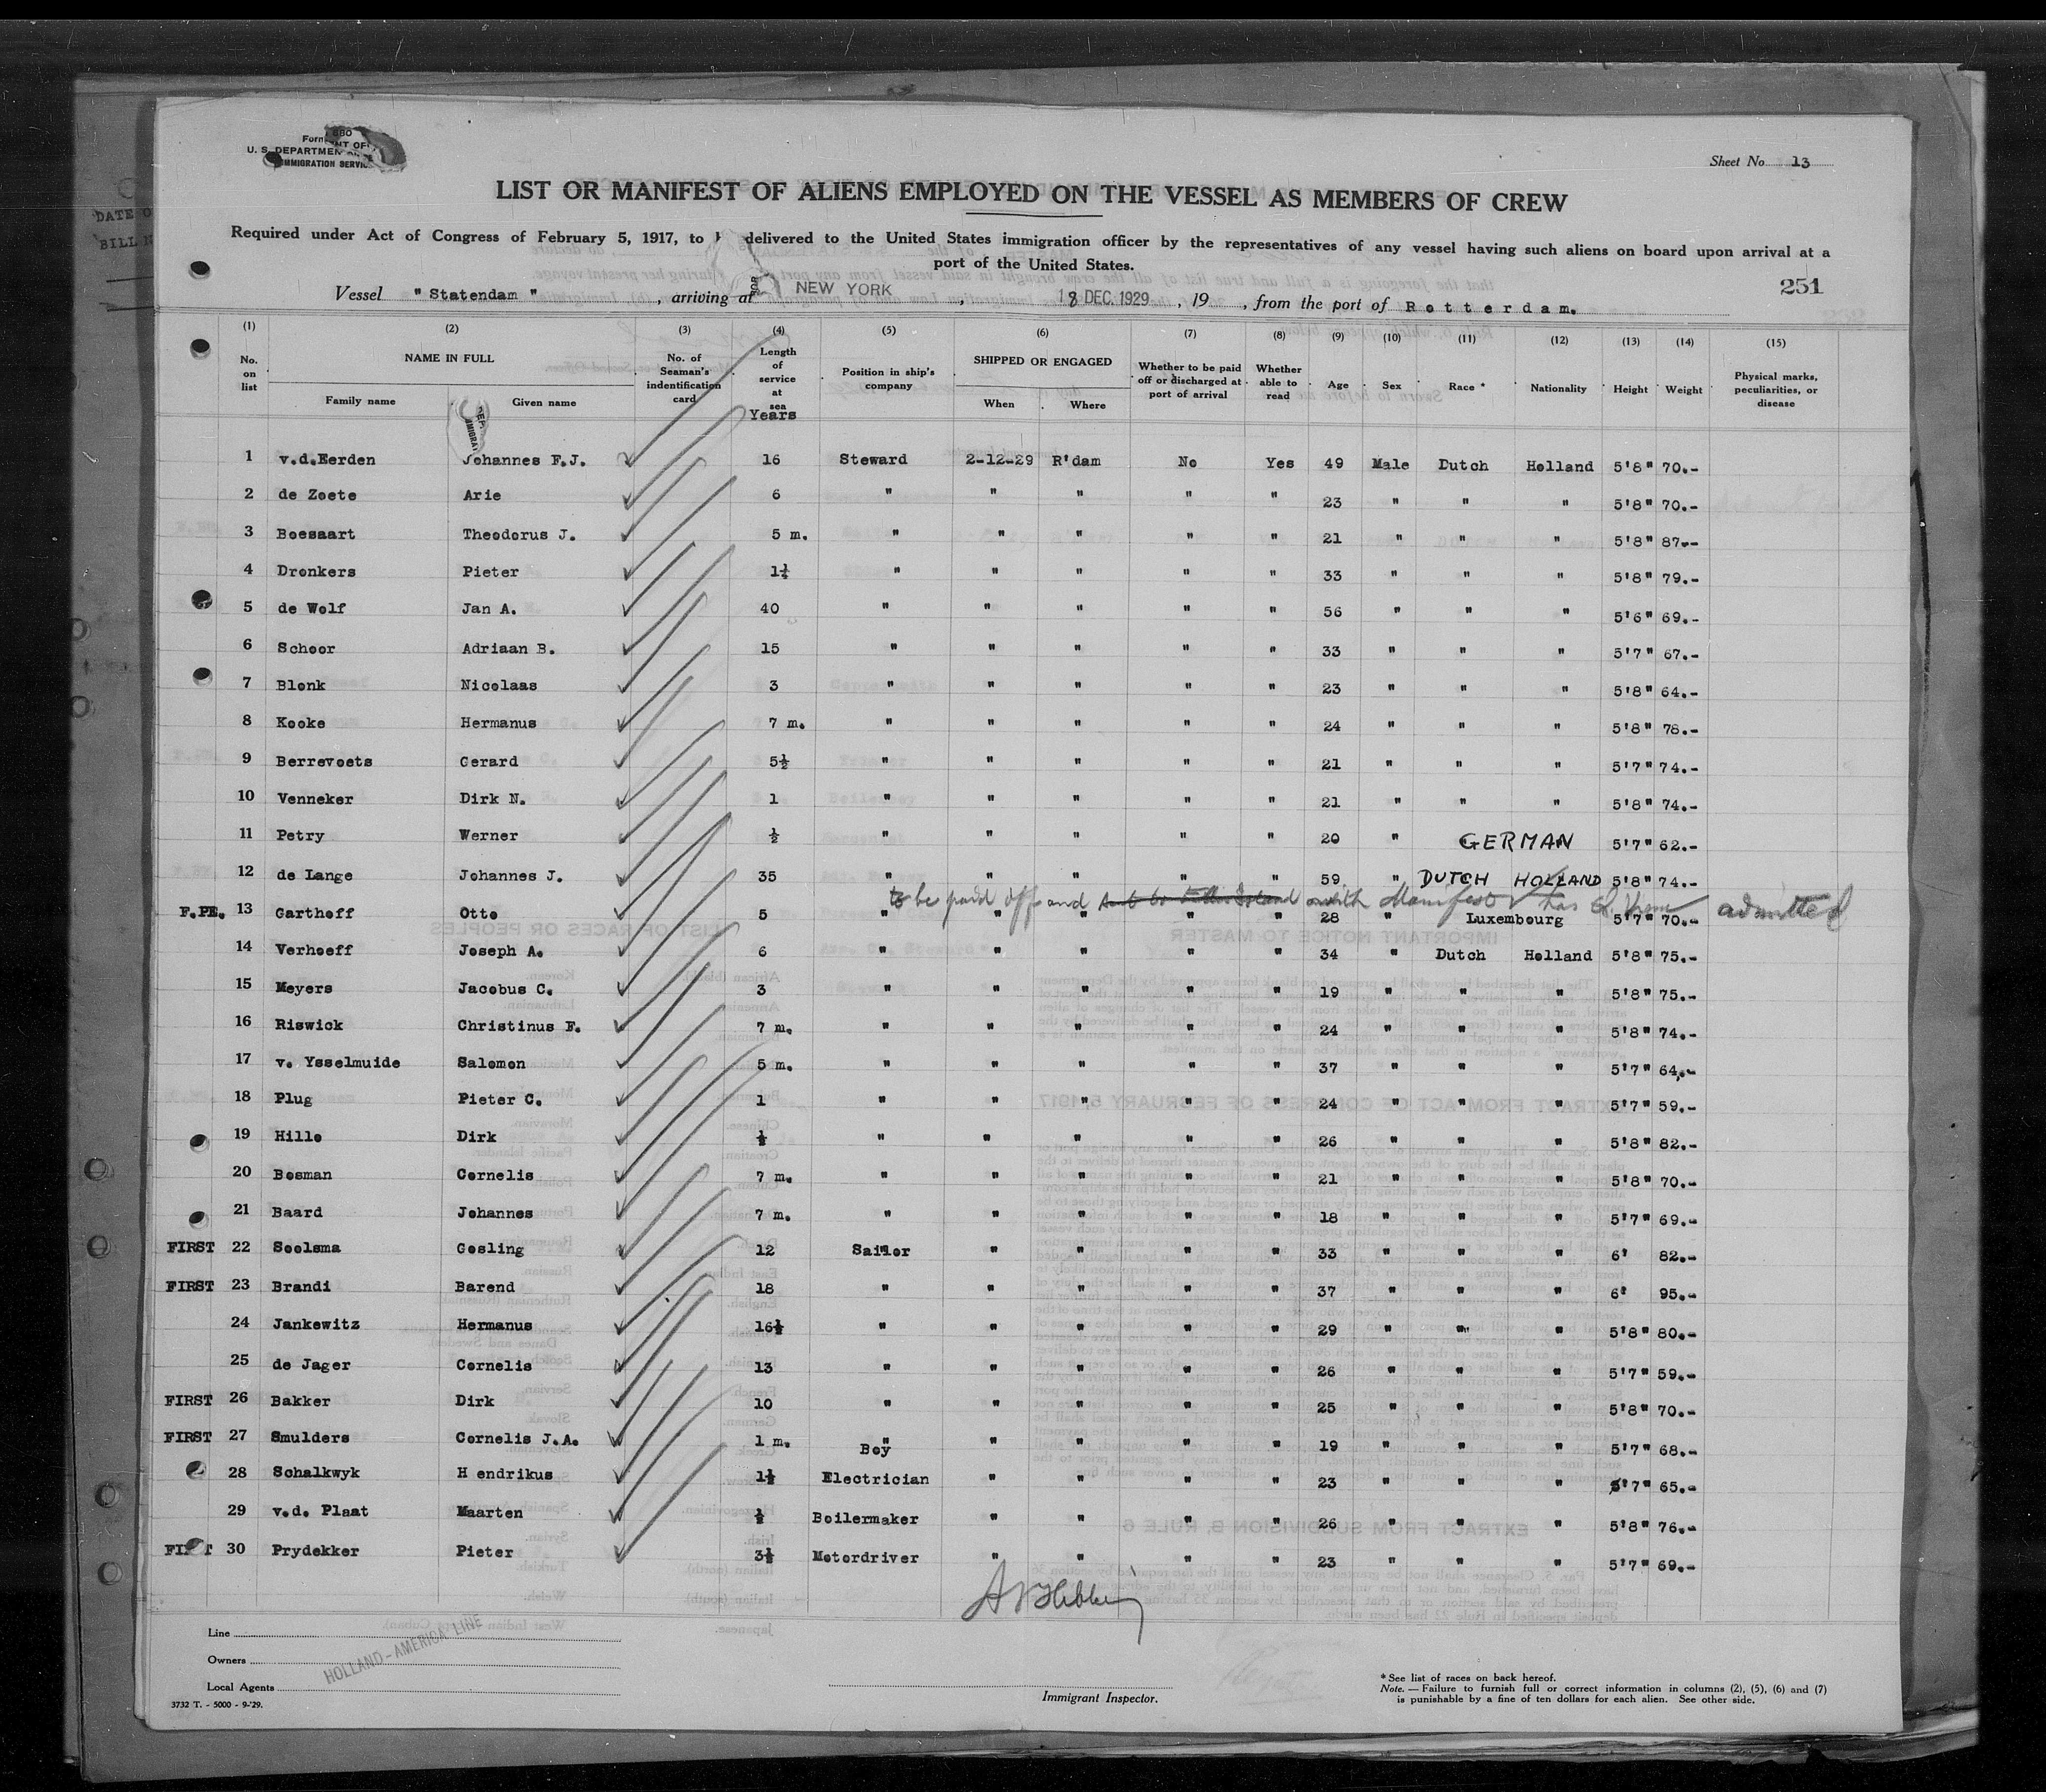 Form 680
U. S. DEPARTMENT OF
IMMIGRATION SERVICE
Sheet No 13
LIST OR MANIFEST OF ALIENS EMPLOYED ON THE VESSEL AS MEMBERS OF CREW
Required under Act of Congress of February 5, 1917, to delivered to the United States immigration officer by the representatives of any vessel having such aliens on board upon arrival at a
port of the United States.
251
Vessel "Statendam", arriving at NEW YORK, 18 DEC. 1929, 19 , from the port of Rotterdam.
(1) (2) (3) (4) (5) (6) (7) (8) (9) (10) (11) (12) (13) (14) (15)
No. on list NAME IN FULL Family name Given name No. of Seaman's indentification card Length of service at sea Years Position in ship's company SHIPPED OR ENGAGED When Where Whether to be paid off or discharged at port of arrival Whether able to read Age Sex Race * Nationality Height Weight Physical marks, peculiarities, or disease
1 v.d.Eerden Johannes F.J. 16 Steward 2-12-29 R'dam No Yes 49 Male Dutch Holland 5'8" 70.-
2 de Zoete Arie 6 " " " " " 23 " " " 5'8" 70.-
3 Boesaart Theodorus J. 5 m. " " " " " 21 " " " 5'8" 87.-
4 Dronkers Pieter 1¼ " " " " " 33 " " " 5'8" 79.-
5 de Wolf Jan A. 40 " " " " " 56 " " " 5'6" 69.-
6 Schoor Adriaan B. 15 " " " " " 33 " " " 5'7" 67.-
7 Blonk Nicolaas 3 " " " " " 23 " " " 5'8" 64.-
8 Kooke Hermanus 7 m. " " " " " 24 " " " 5'8" 78.-
9 Berrevoets Gerard 5½ " " " " " 21 " " " 5'7" 74.-
10 Venneker Dirk N. 1 " " " " " 21 " " " 5'8" 74.-
11 Petry Werner ½ " " " " " 20 " GERMAN 5'7" 62.-
12 de Lange Johannes J. 35 " " " " " 59 " DUTCH HOLLAND 5'8" 74.-
to be paid off and with Manifest has admitted
F.PE. 13 Garthoff Otto 5 " " " " " 28 " Luxembourg 5'7" 70.-
14 Verhoeff Joseph A. 6 " " " " " 34 " Dutch Holland 5'8" 75.-
15 Meyers Jacobus C. 3 " " " " " 19 " " " 5'8" 75.-
16 Riswick Christinus F. 7 m. " " " " " 24 " " " 5'8" 74.-
17 v. Ysselmuide Salomon 5 m. " " " " " 37 " " " 5'7" 64.-
18 Plug Pieter C. 1 " " " " " 24 " " " 5'7" 59.-
19 Hille Dirk ½ " " " " " 26 " " " 5'8" 82.-
20 Bosman Cornelis 7 m. " " " " " 21 " " " 5'8" 70.-
21 Baard Johannes 7 m. " " " " " 18 " " " 5'7" 69.-
FIRST 22 Soolsma Gosling 12 Sailor " " " " 33 " " " 6' 82.-
FIRST 23 Brandi Barend 18 " " " " " 37 " " " 6' 95.-
24 Jankewitz Hermanus 16½ " " " " " 29 " " " 5'8" 80.-
25 de Jager Cornelis 13 " " " " " 26 " " " 5'7" 59.-
FIRST 26 Bakker Dirk 10 " " " " " 25 " " " 5'8" 70.-
FIRST 27 Smulders Cornelis J.A. 1 m. " Boy " " " " 19 " " " 5'7" 68.-
28 Schalkwyk H endrikus 1½ Electrician " " " " 23 " " " 5'7" 65.-
29 v.d. Plaat Maarten ½ Boilermaker " " " " 26 " " " 5'8" 76.-
FIRST 30 Prydekker Pieter 3½ Motordriver " " " " 23 " " " 5'7" 69.-
Line
Owners
HOLLAND-AMERICA LINE
Local Agents
3732 T. - 5000 - 9-'29.
Immigrant Inspector.
* See list of races on back hereof.
Note. — Failure to furnish full or correct information in columns (2), (5), (6) and (7)
is punishable by a fine of ten dollars for each alien. See other side.